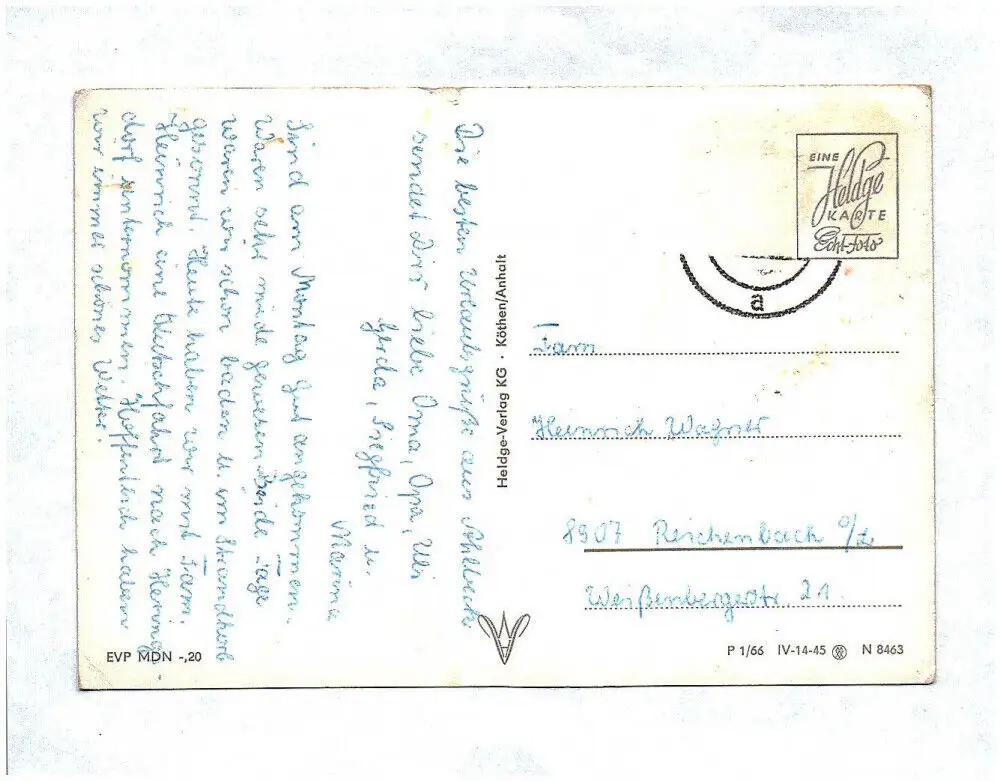 Die besten Urlaubsgrüße aus Ahlbeck
sendet Dir liebe Oma, Opa, Uli
Gerda, Siegfried u.
Marina
Sind am Montag gut angekommen.
Waren sehr müde gewesen. Beide Tage
waren wir schon baden u. im Strandkorb
gesonnt. Heute haben wir mit Fam.
Heinrich eine Kutschfahrt nach Herings
dorf unternommen. Hoffentlich haben
wir immer schönes Wetter.
EVP MDN -,20
Heldge-Verlag KG · Köthen/Anhalt
EINE
Heldge
KARTE
Echt-Foto
a
Fam
Heinrich Wagner
8907 Reichenbach O/L
Weißenbergerstr. 21
P 1/66 IV-14-45 N 8463